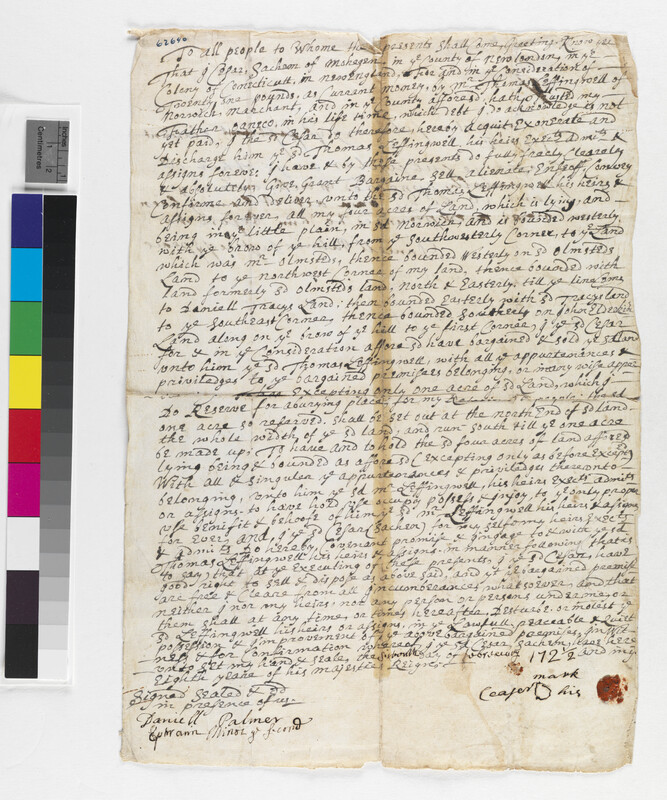 62640
To all people to Whome these presents Shall Come Greeting. Know yee
That I Cesar, Sachem of Mohegen in ye County of New london, in ye
Colony of Conecticutt, in new England. For and in ye Consideration of
Twenty one pounds, as Current money, by mr. Thomas Leffingwell of
Norwich, Marchant, and in ye County aforesd hath trusted my
Feather oaneco, in his life time, which debt I do acknowledge is not
yet paid, I the sd Cesar do therefore, hereby acquit, Exonerate and
Discharge him ye sd Thomas Leffingwell his heirs Exects admits &
assigns forever. I have & by these presents do fully freely Clearely
& absolutely, Give, Grant Bargaine Sell, alienate, Enfeof, Convey
Confirme and Deliver unto the sd Thomas Leffingwell his heirs &
assigns forever all my four acres of Land, which is lying and
being in ye little plain, in sd Norwich and is bounded westerly
with ye brow of ye hill, from ye Southwesterly Corner, to ye Land
which was mr. Olmsteds, thence bounded Westerly on sd Olmsteds
Land to ye northwest Corner of my land, thence bounded with
land formerly sd Olmsteds land, North & Easterly, till ye line Come
to Daniell Tracys Land: then bounded Easterly with sd Tracys land
to ye Southeast Corner, thence bounded Southerly on John Elderkin
Land along on ye brow of ye hill to ye first Corner, I ye sd Cesar
for & in ye Consideration aforesd have bargained & sold ye sd land
unto him ye sd Thomas Leffingwell, with all ye appurtenances &
priviledges to ye bargained premisses belonging, or many wise apper
Excepting only one acre of sd Land, which I
Do Reserve for a burying place for my people: the sd
one acre so reserved, shall be set out at the north End of sd land
the whole width of ye sd land, and run South till ye one acre
be made up: To have and to hold the sd four acres of land aforesd
lying being & bounded as aforesd (Excepting only as before Excepted
With all & singuler ye appurtenances & priviledges thereonto
belonging, unto him ye sd mr. Leffingwell, his heirs Exects admits
or assigns. to have hold use occupy posses & injoy, to ye only proper
use benifit & behoofe of him ye sd mr. Leffingwell his heirs & assigns
for Ever: and I ye sd Cesar (Sachem) for my self my heirs Exects
& admits Do hereby Covenant promise & ingage to & with ye sd
Thomas Leffingwell his heirs & assigns. in manner following that is
to say; that at ye Executing of these presents, I ye sd Cesar, have
good right to sell & dispose as above said, and ye bargained premises
are free & Cleare from all incumberance whatsoever, and that
neither I nor my heirs, not any person or persons under me, or
them shall at any time, or times hereafter, Desturbe or molest ye
sd Leffingwell his heirs or assigns, in ye Lawfull peaceable & Quiet
possesion & improvement of ye above bargained premeses, In Wit-
ness & for Confirmation whereof I ye sd Cesar Sachem, have here
unto set my hand & seale, the day of february 172½ and in ye
Eighth yeare of his majesties Reigne
Signed Sealed & dd
in presence of us.
Daniell Palmer
Ephraim Minor ye second
mark
Ceaser his